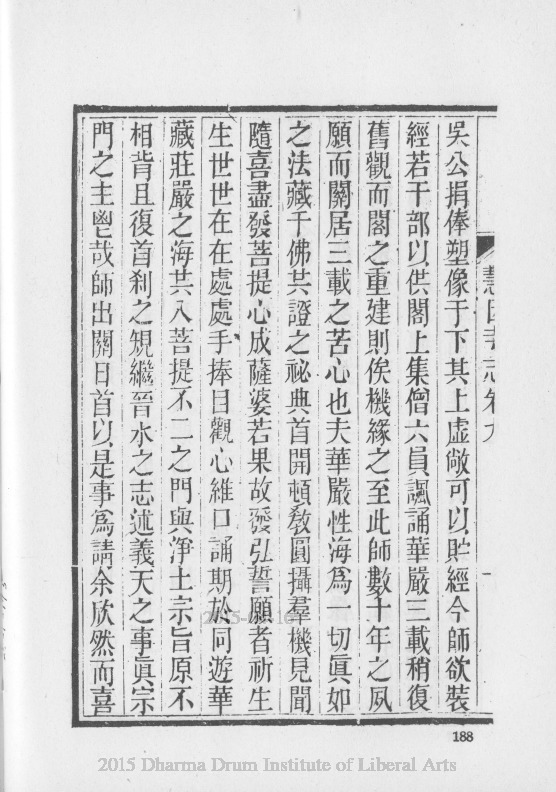 慧因寺志卷九
吳公捐俸塑像于下其上虛敞可以貯經今師欲裝
經若干部以供閣上集僧六員諷誦華嚴三載稍復
舊觀而閣之重建則俟機緣之至此師數十年之夙
願而關居三載之苦心也夫華嚴性海為一切眞如
之法藏千佛共證之祕典首開頓教圓攝羣機見聞
隨喜盡發菩提心成薩婆若果故發弘誓願者祈生
生世世在在處處手捧目觀心維口誦期於同遊華
藏莊嚴之海共入菩提不二之門與淨土宗旨原不
相背且復首剎之規繼晉水之志述義天之事眞宗
門之主鬯哉師出關日首以是事為請余欣然而喜
188
2015 Dharma Drum Institute of Liberal Arts